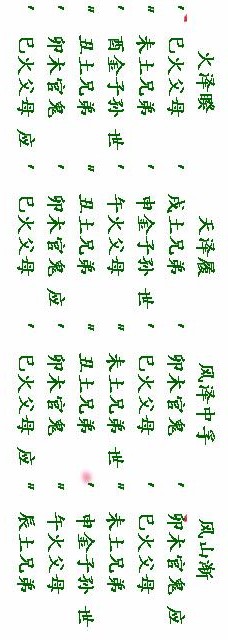 火泽睽
′ 巳火父母
″ 未土兄弟
′ 酉金子孙 世
″ 丑土兄弟
′ 卯木官鬼
′ 巳火父母 应
天泽履
′ 戌土兄弟
′ 申金子孙 世
′ 午火父母
″ 丑土兄弟
′ 卯木官鬼 应
′ 巳火父母
风泽中孚
′ 卯木官鬼
′ 巳火父母
″ 未土兄弟 世
″ 丑土兄弟
′ 卯木官鬼
′ 巳火父母 应
风山渐
′ 卯木官鬼 应
′ 巳火父母
″ 未土兄弟
′ 申金子孙 世
″ 午火父母
″ 辰土兄弟